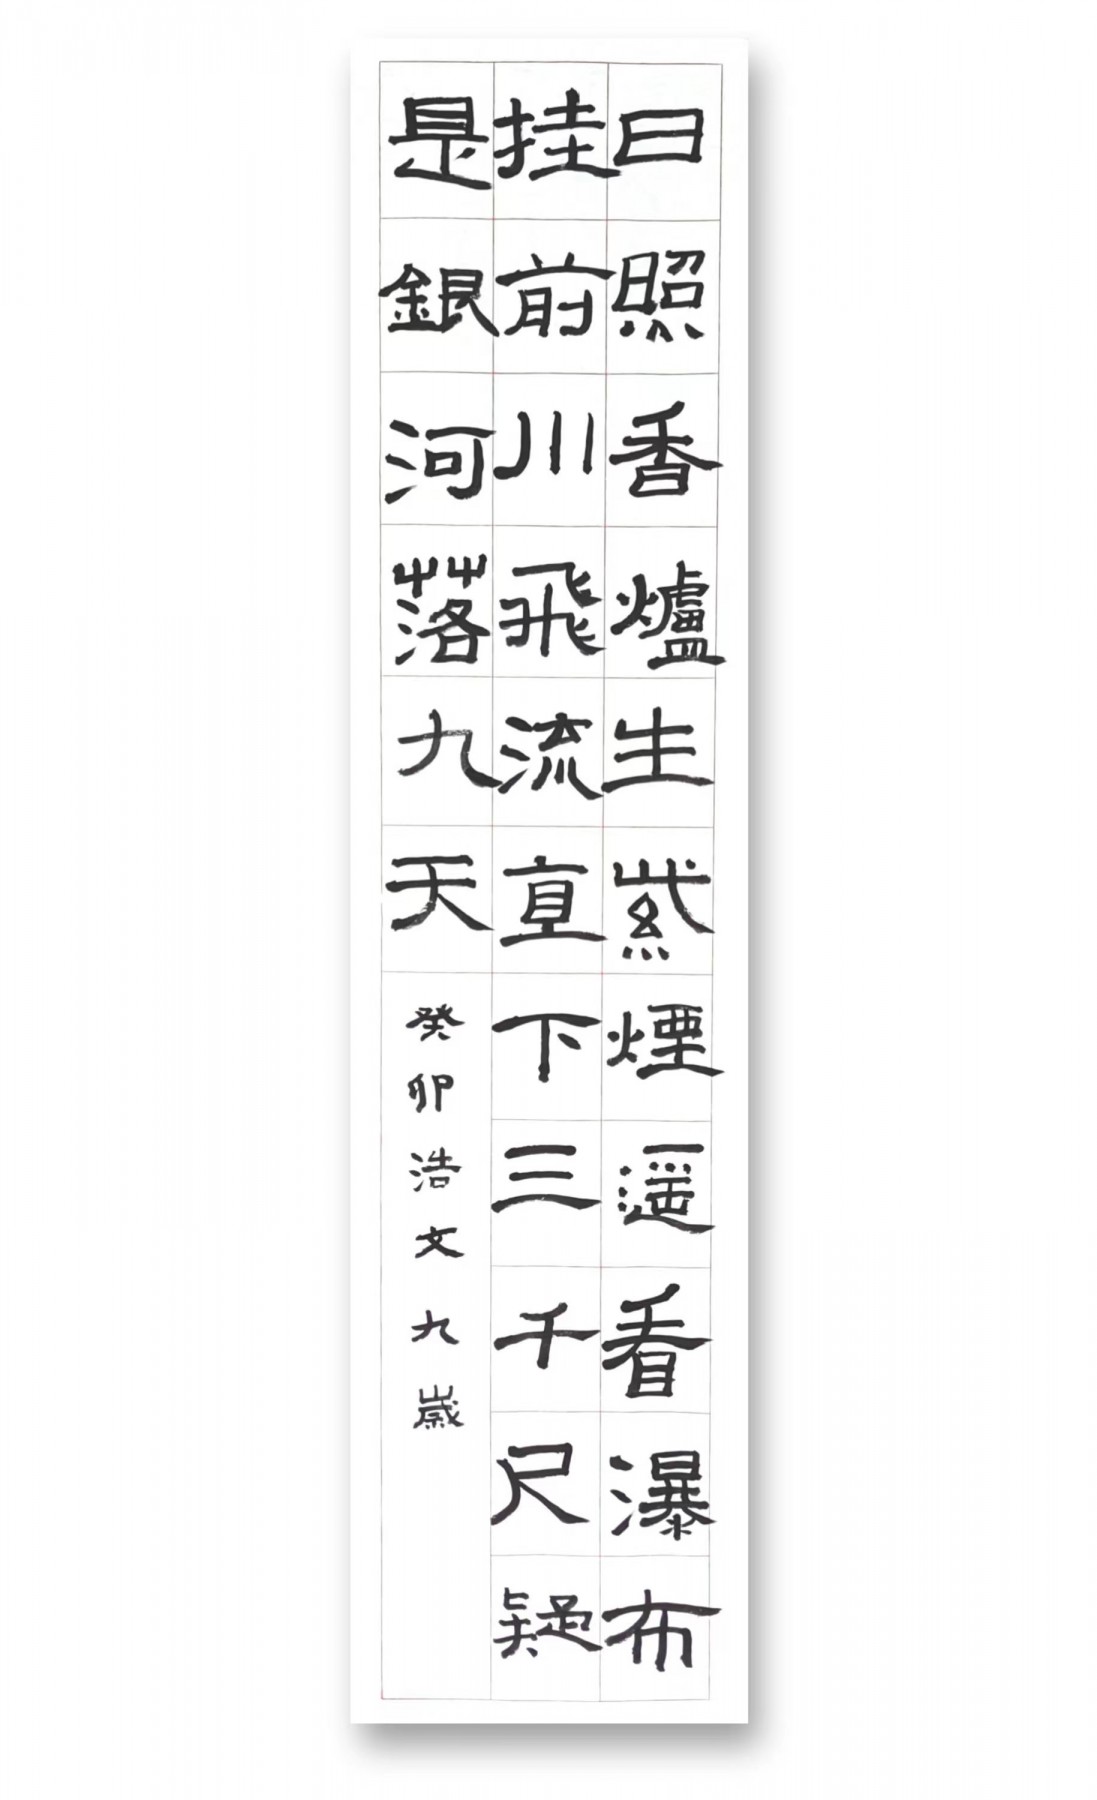 日照香爐生紫煙遥看瀑布
挂前川飛流直下三千尺疑
是銀河落九天
癸卯浩文九歲